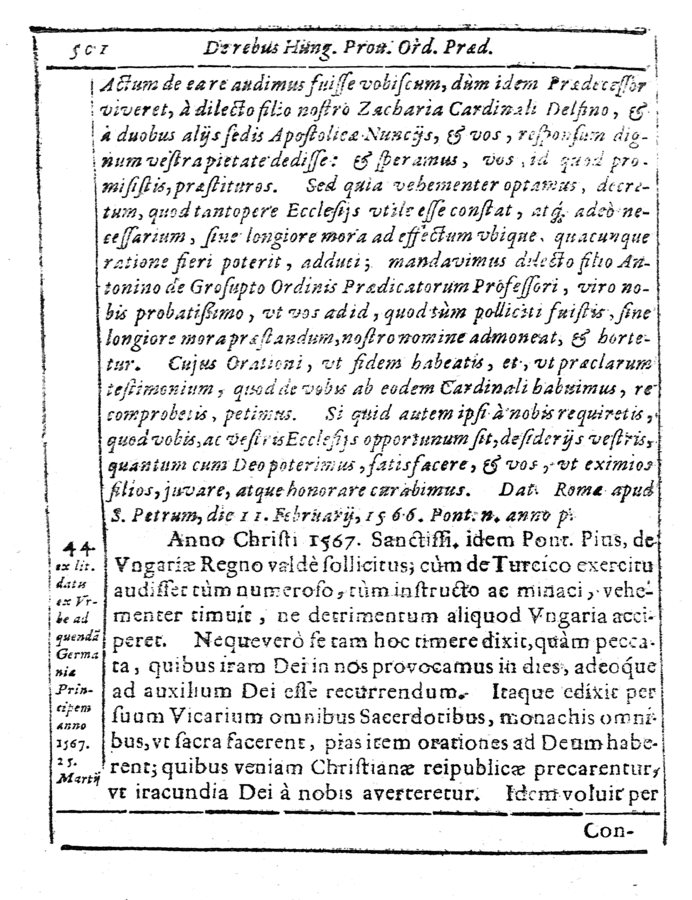 501 De rebus Hung. Prou. Ord. Præd.
Actum de ea re audimus fuiſſe vobiſcum, dùm idem Prædeceſſor
viveret, à dilecto filio noſtro Zacharia Cardinali Delfino, &
à duobus alijs ſedis Apoſtolicæ Nuncijs, & vos, reſponſum dig-
num veſtra pietate dediſſe: & ſperamus, vos, id quod pro-
miſiſtis, præſtituros. Sed quia vehementer optamus, decre-
tum, quod tantopere Eccleſijs vtile eſſe conſtat, atq́ adeò ne-
ceſſarium, ſine longiore mora ad effectum vbique, quacunque
ratione fieri poterit, adduci; mandavimus dilecto filio An-
tonino de Groſupto Ordinis Prædicatorum Profeſſori, viro no-
bis probatiſſimo, vt vos ad id, quod tùm polliciti fuiſtis, ſine
longiore mora præſtandum, noſtro nomine admoneat, & horte-
tur. Cujus Orationi, vt fidem habeatis, et, vt præclarum
teſtimonium, quod de vobis ab eodem Cardinali habuimus, re
comprobetis, petimus. Si quid autem ipſi à nobis requiretis,
quod vobis, ac veſtris Eccleſijs opportunum ſit, deſiderijs veſtris,
quantum cum Deo poterimus, ſatisfacere, & vos, vt eximios
filios, juvare, atque honorare curabimus. Dat. Romæ apud
S. Petrum, die 11. Februarij, 1566. Pont. n. anno p.
Anno Chriſti 1567. Sanctiſſ. idem Pont. Pius, de
Vngariæ Regno valdè ſollicitus; cùm de Turcico exercitu
audiſſet tùm numeroſo, tùm inſtructo ac minaci, vehe-
menter timuit, ne detrimentum aliquod Vngaria acci-
peret. Neque verò ſe tam hoc timere dixit, quàm pecca-
ta, quibus iram Dei in nos provocamus in dies, adeoque
ad auxilium Dei eſſe recurrendum. Itaque edixit per
ſuum Vicarium omnibus Sacerdotibus, monachis omni-
bus, vt ſacra facerent, pias item orationes ad Deum habe-
rent; quibus veniam Chriſtianæ reipublicæ precarentur,
vt iracundia Dei à nobis averteretur. Idem voluit per
Con-
44
ex lit.
datis
ex Vr-
be ad
quendā
Germa
niæ
Prin-
cipem
anno
1567.
25.
Martij